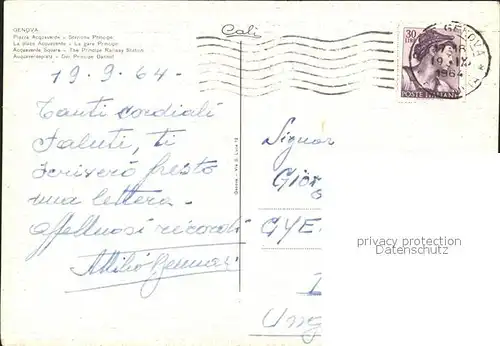 GENOVA
Piazza Acquaverde - Stazione Principe
La place Acquaverde - La gare Principe
Acquaverde Square - The Principe Railway Station
Acquaverdeplatz - Der Principe Bahnhof
19.9.64-
Tanti cordiali
saluti, ti
scriverò presto
una lettera.
affettuosi ricordi
Attilio
30
LIRE
POSTE ITALIANE
GENOVA
19.IX.
1964
Signor
Gior
GYE
Ung
privacy protection
Datenschutz